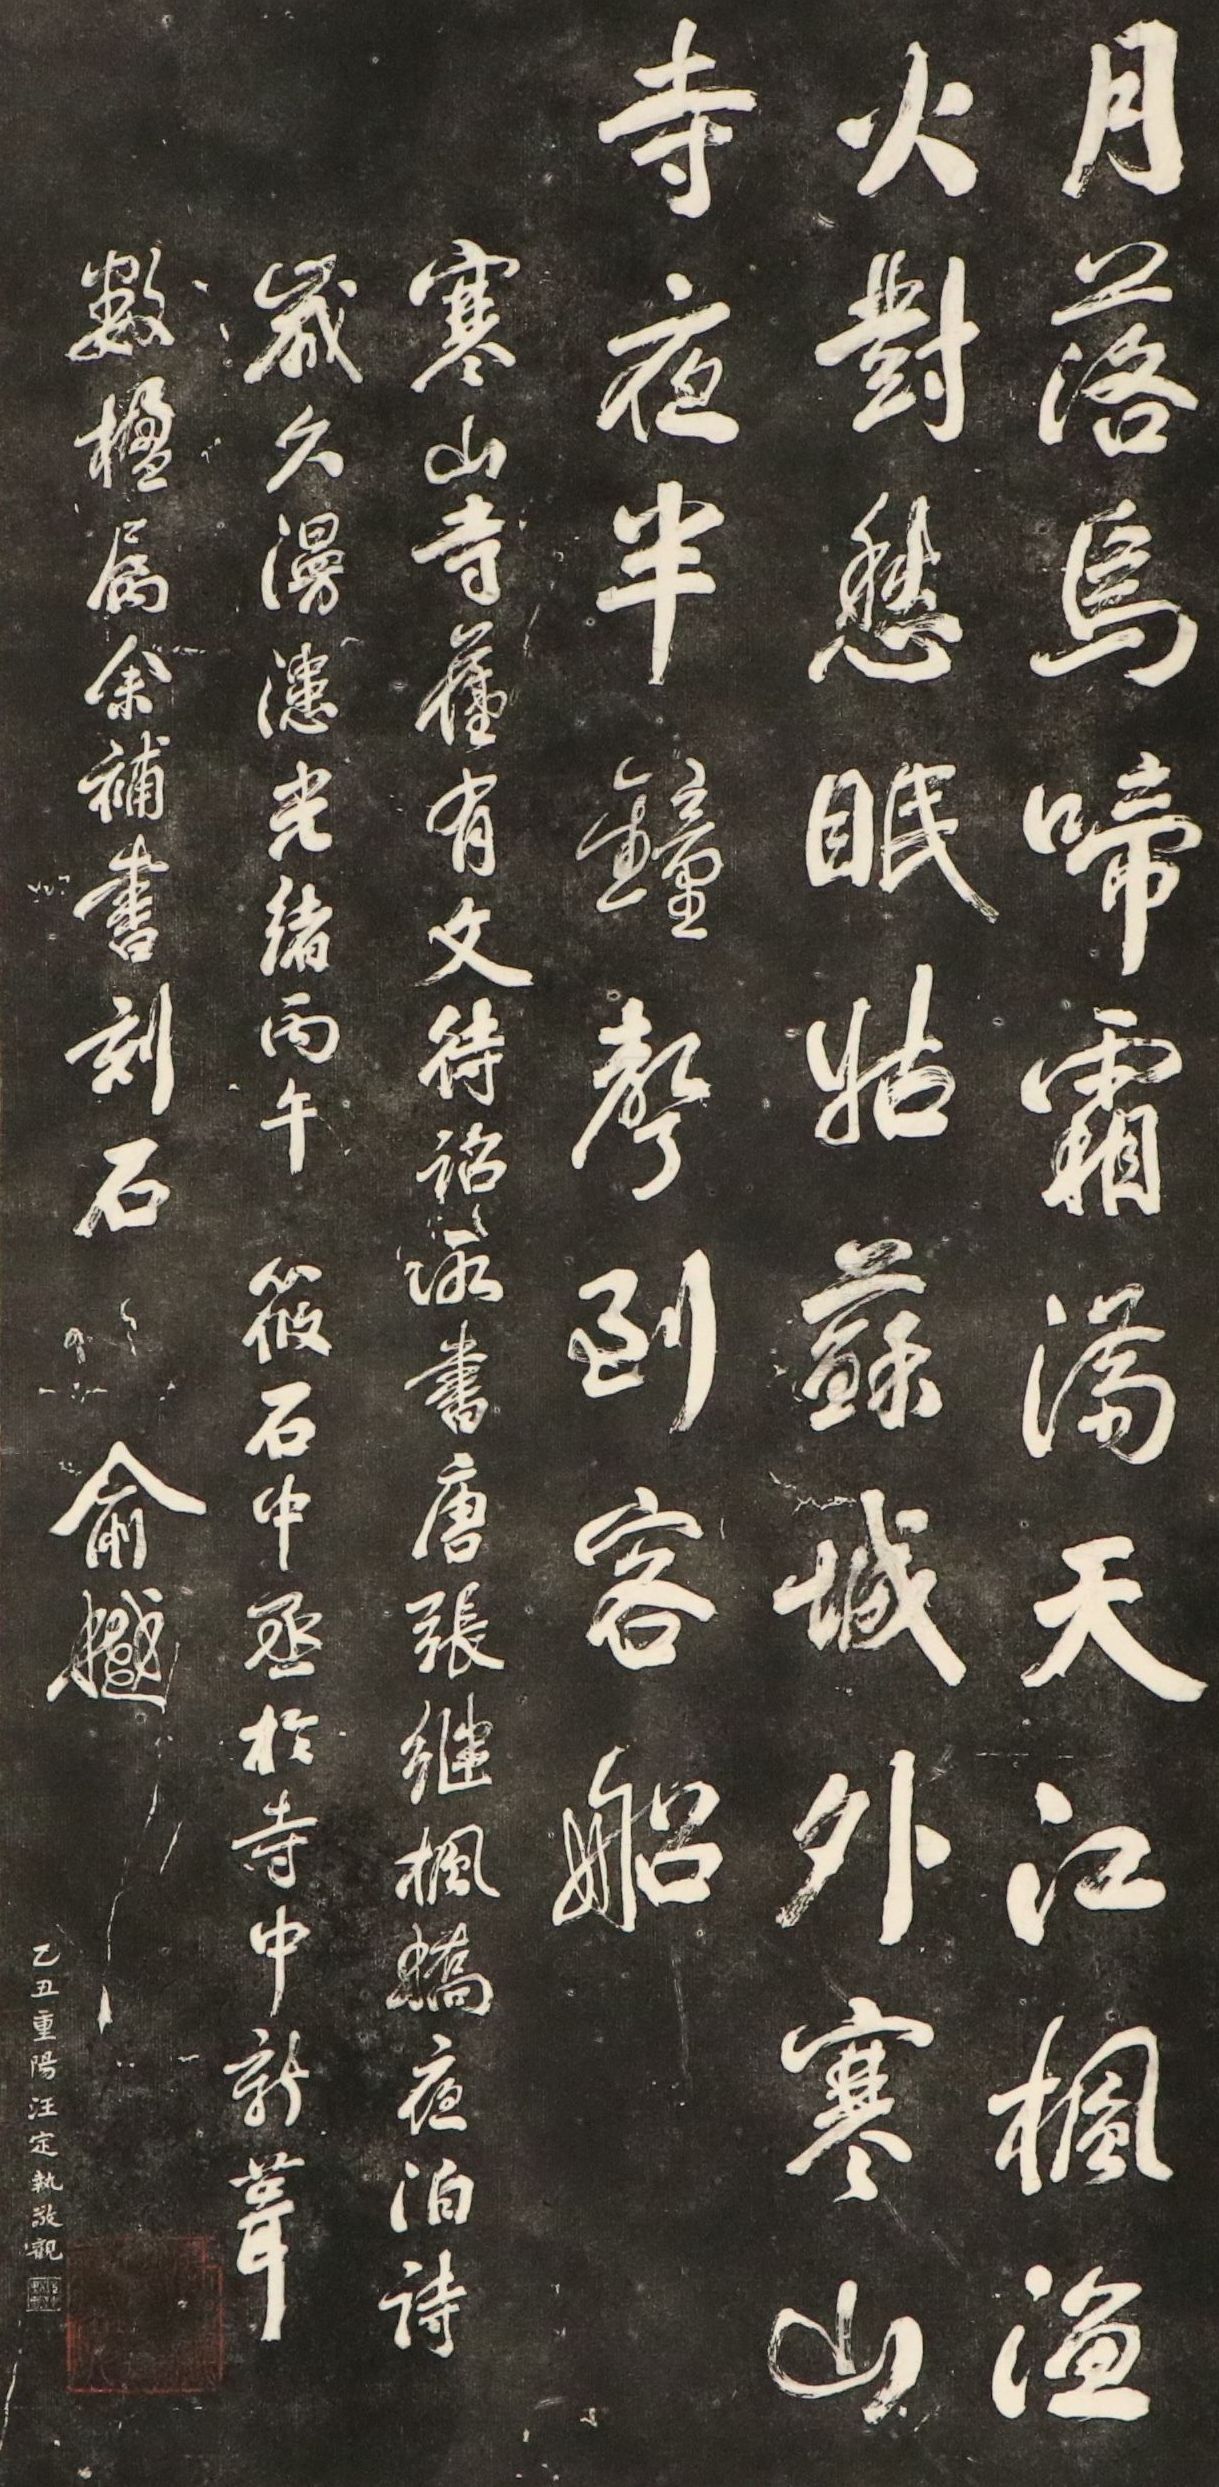 月落烏啼霜滿天江楓漁
火對愁眠姑蘇城外寒山
寺夜半鐘聲到客船
寒山寺舊有文待詔所書唐張繼楓橋夜泊詩
歲久漫漶光緒丙午筱石中丞於寺中新葺
數楹属余補書刻石俞樾
乙丑重陽汪定執敬觀